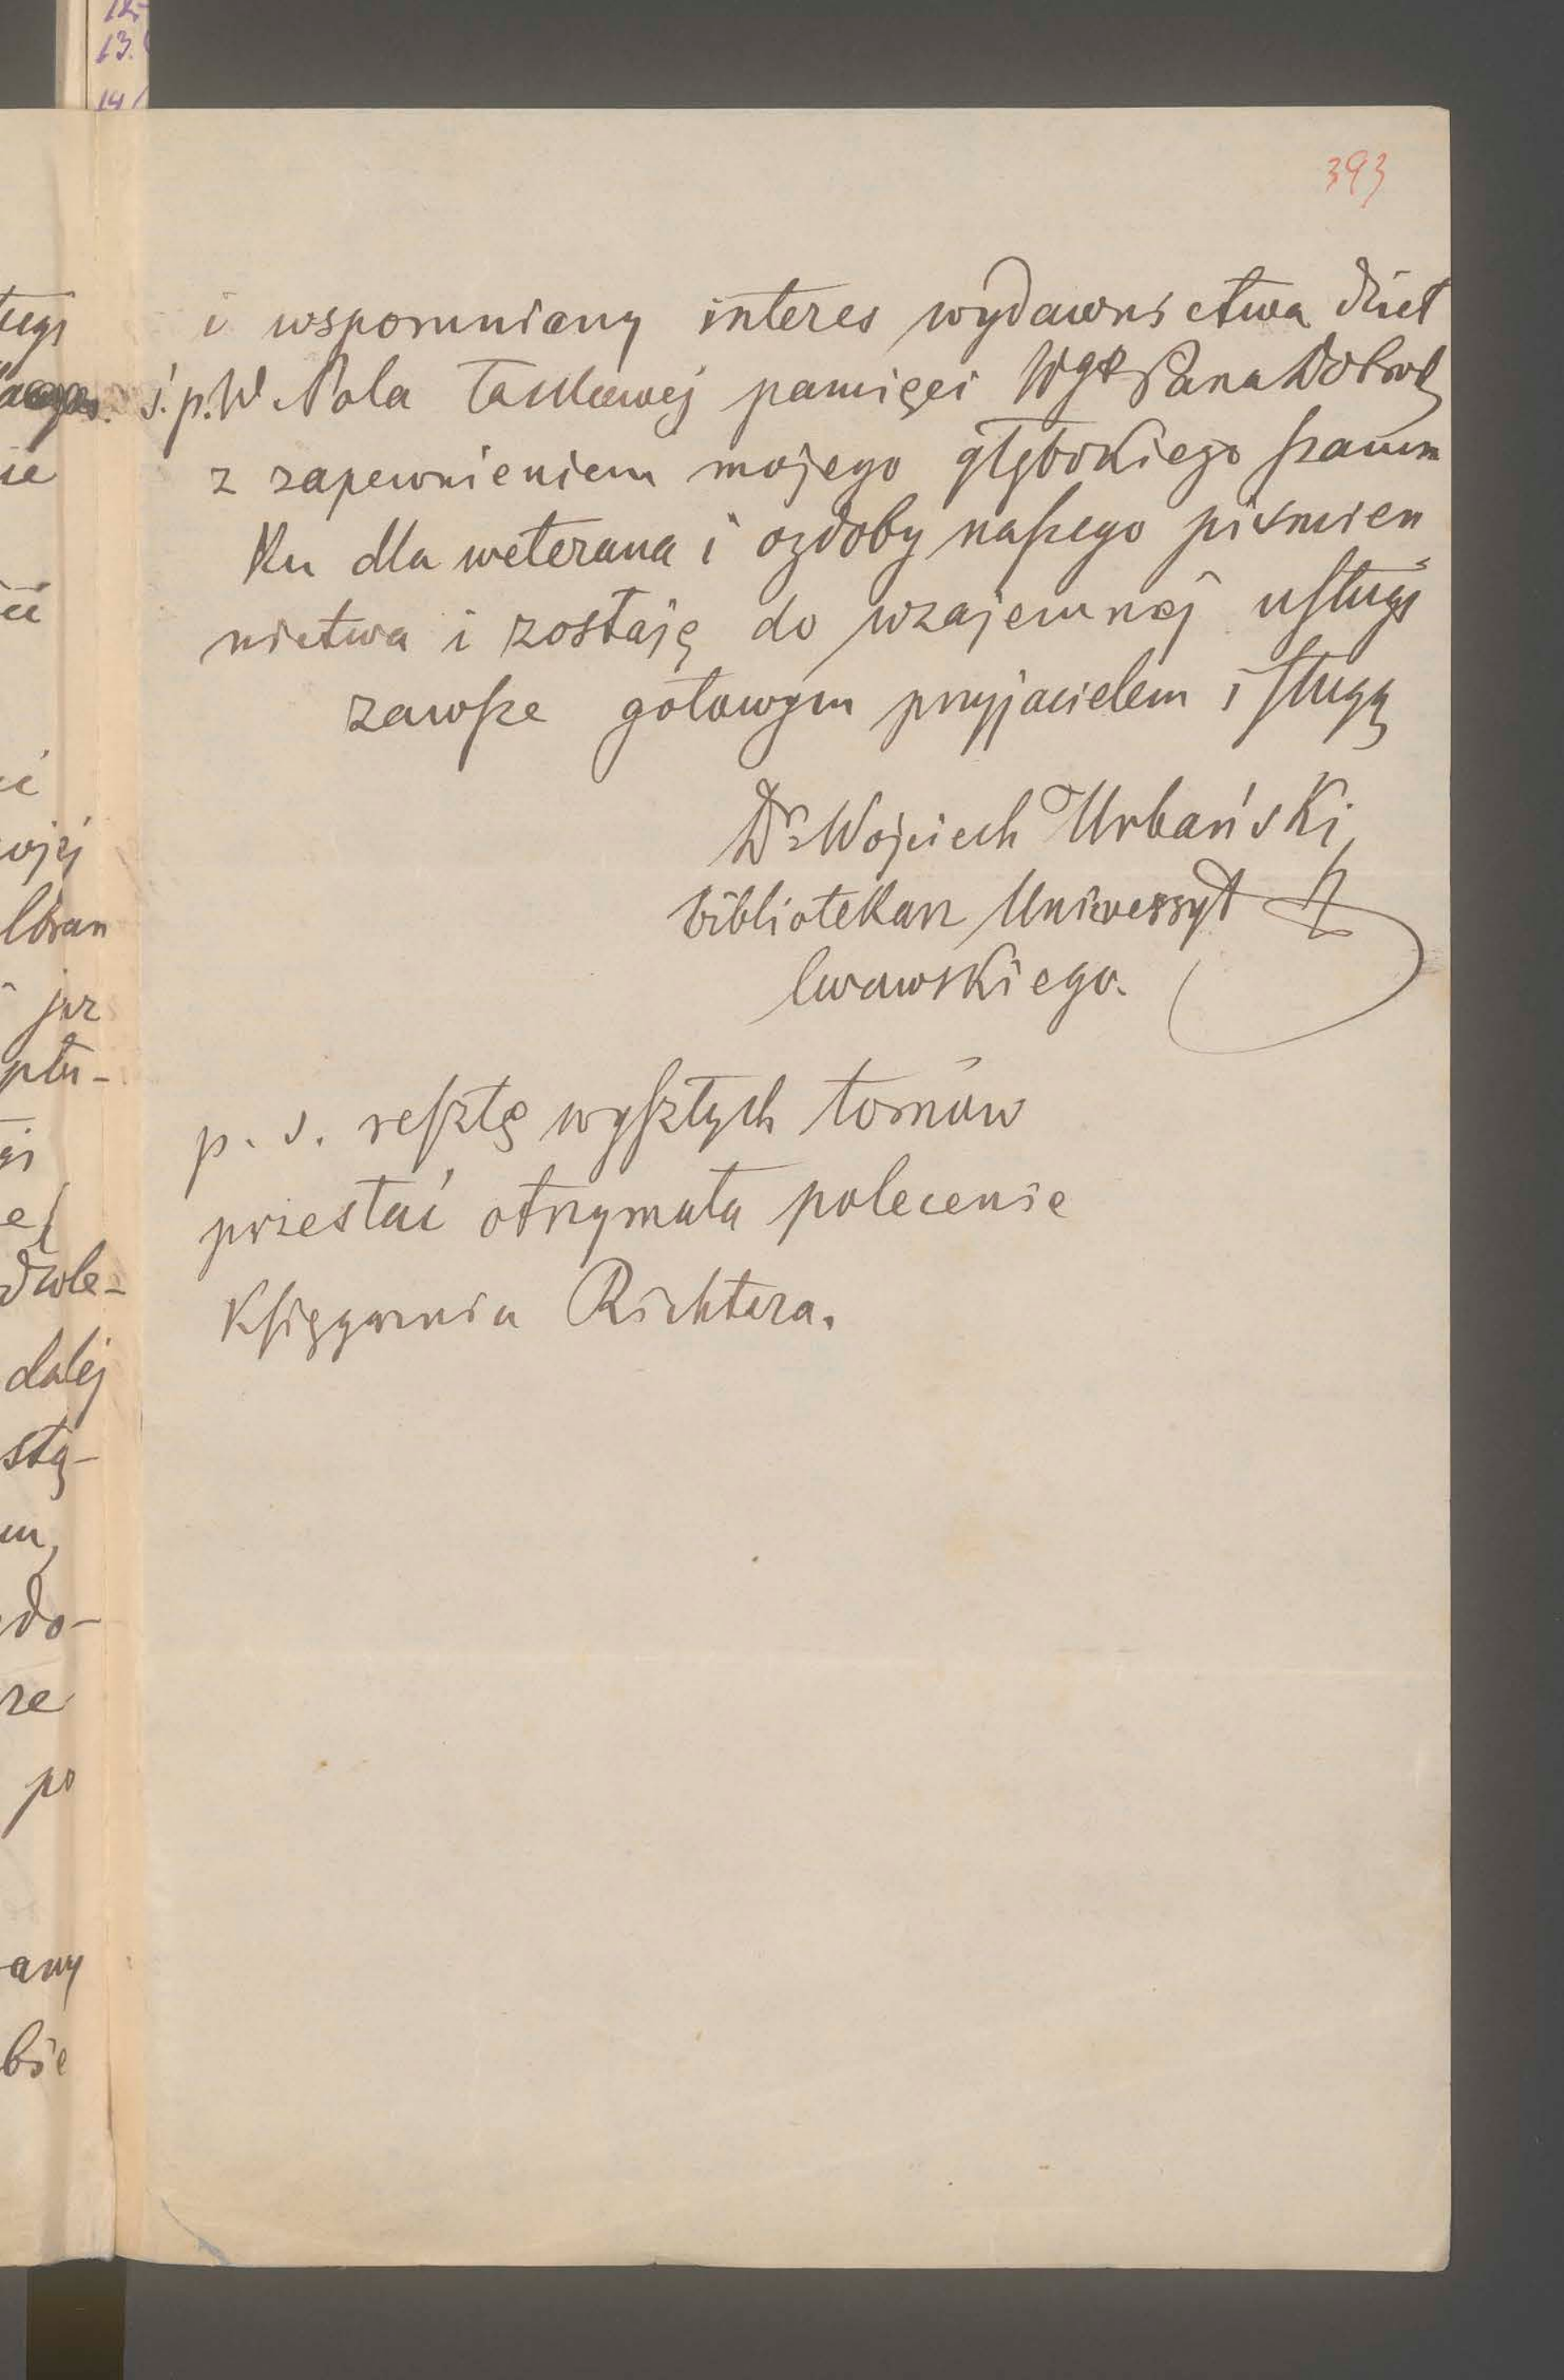 393
i wspomniany interes wydawnictwa dzieł
ś.p. W. Pola łaskawej pamięci Wgo Pana Dobrodz
z zapewnieniem mojego głębokiego szacun
ku dla weterana i ozdoby naszego piśmien
nictwa i zostaję do wzajemnej usługi
zawsze gotowym przyjacielem i sługą
Dr Wojciech Urbański
bibliotekarz Uniwersyt
lwowskiego.
p. s. resztę wyszłych tomów
przesłać otrzymała polecenie
Księgarnia Richtera.